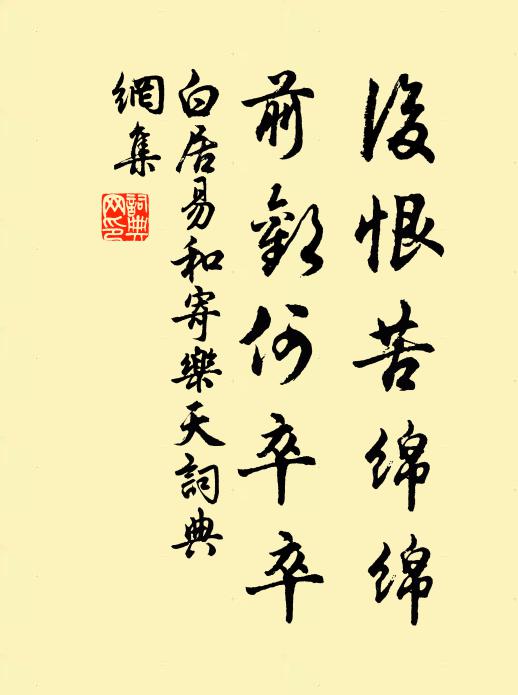 後恨苦綿綿
前歡何卒卒
白居易和寄樂天詞典
網集
詞典
网印